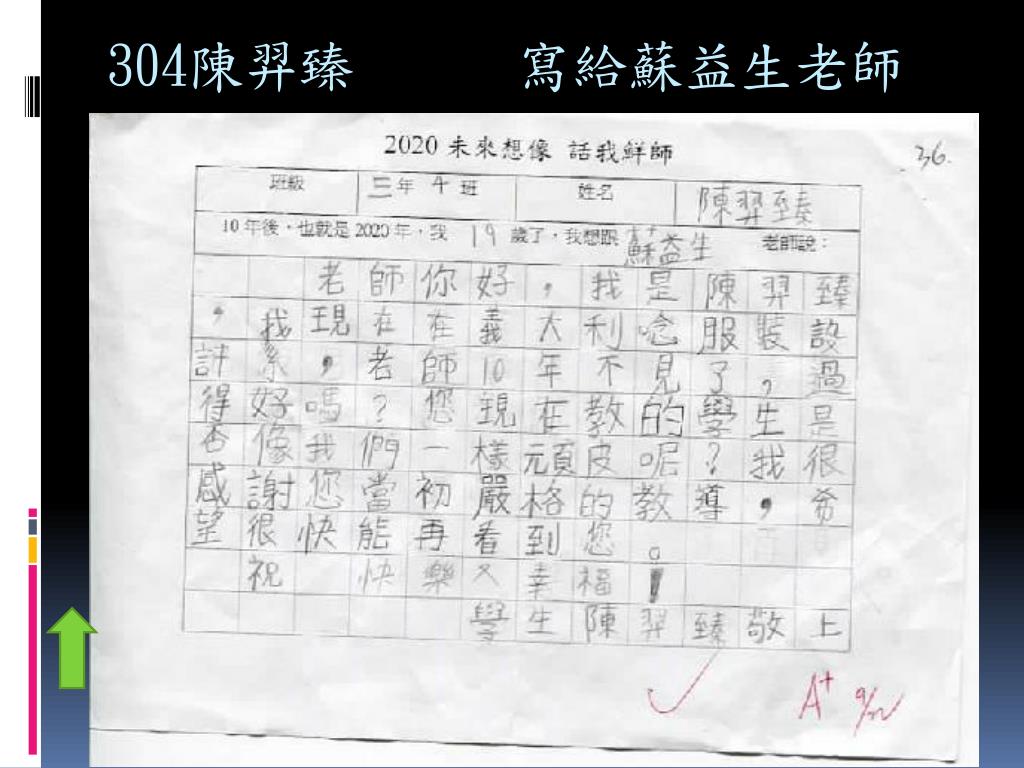 304陳羿臻 寫給蘇益生老師
2020 未來想像 話我鮮師
36.
班級 三年 4 班 姓名 陳羿臻
10 年後,也就是 2020 年,我 19 歲了,我想跟 蘇益生 老師說:
老師你好,我是陳羿臻
,我現在在義大利唸服裝設
計系,老師10年不見了,過
得好嗎?您現在教的學生是
否像我們一樣頑皮呢?我很
感謝您當初嚴格的教導,希
望很快能再看到您。
祝 快樂又幸福!
學生陳羿臻敬上
A+ 9/12